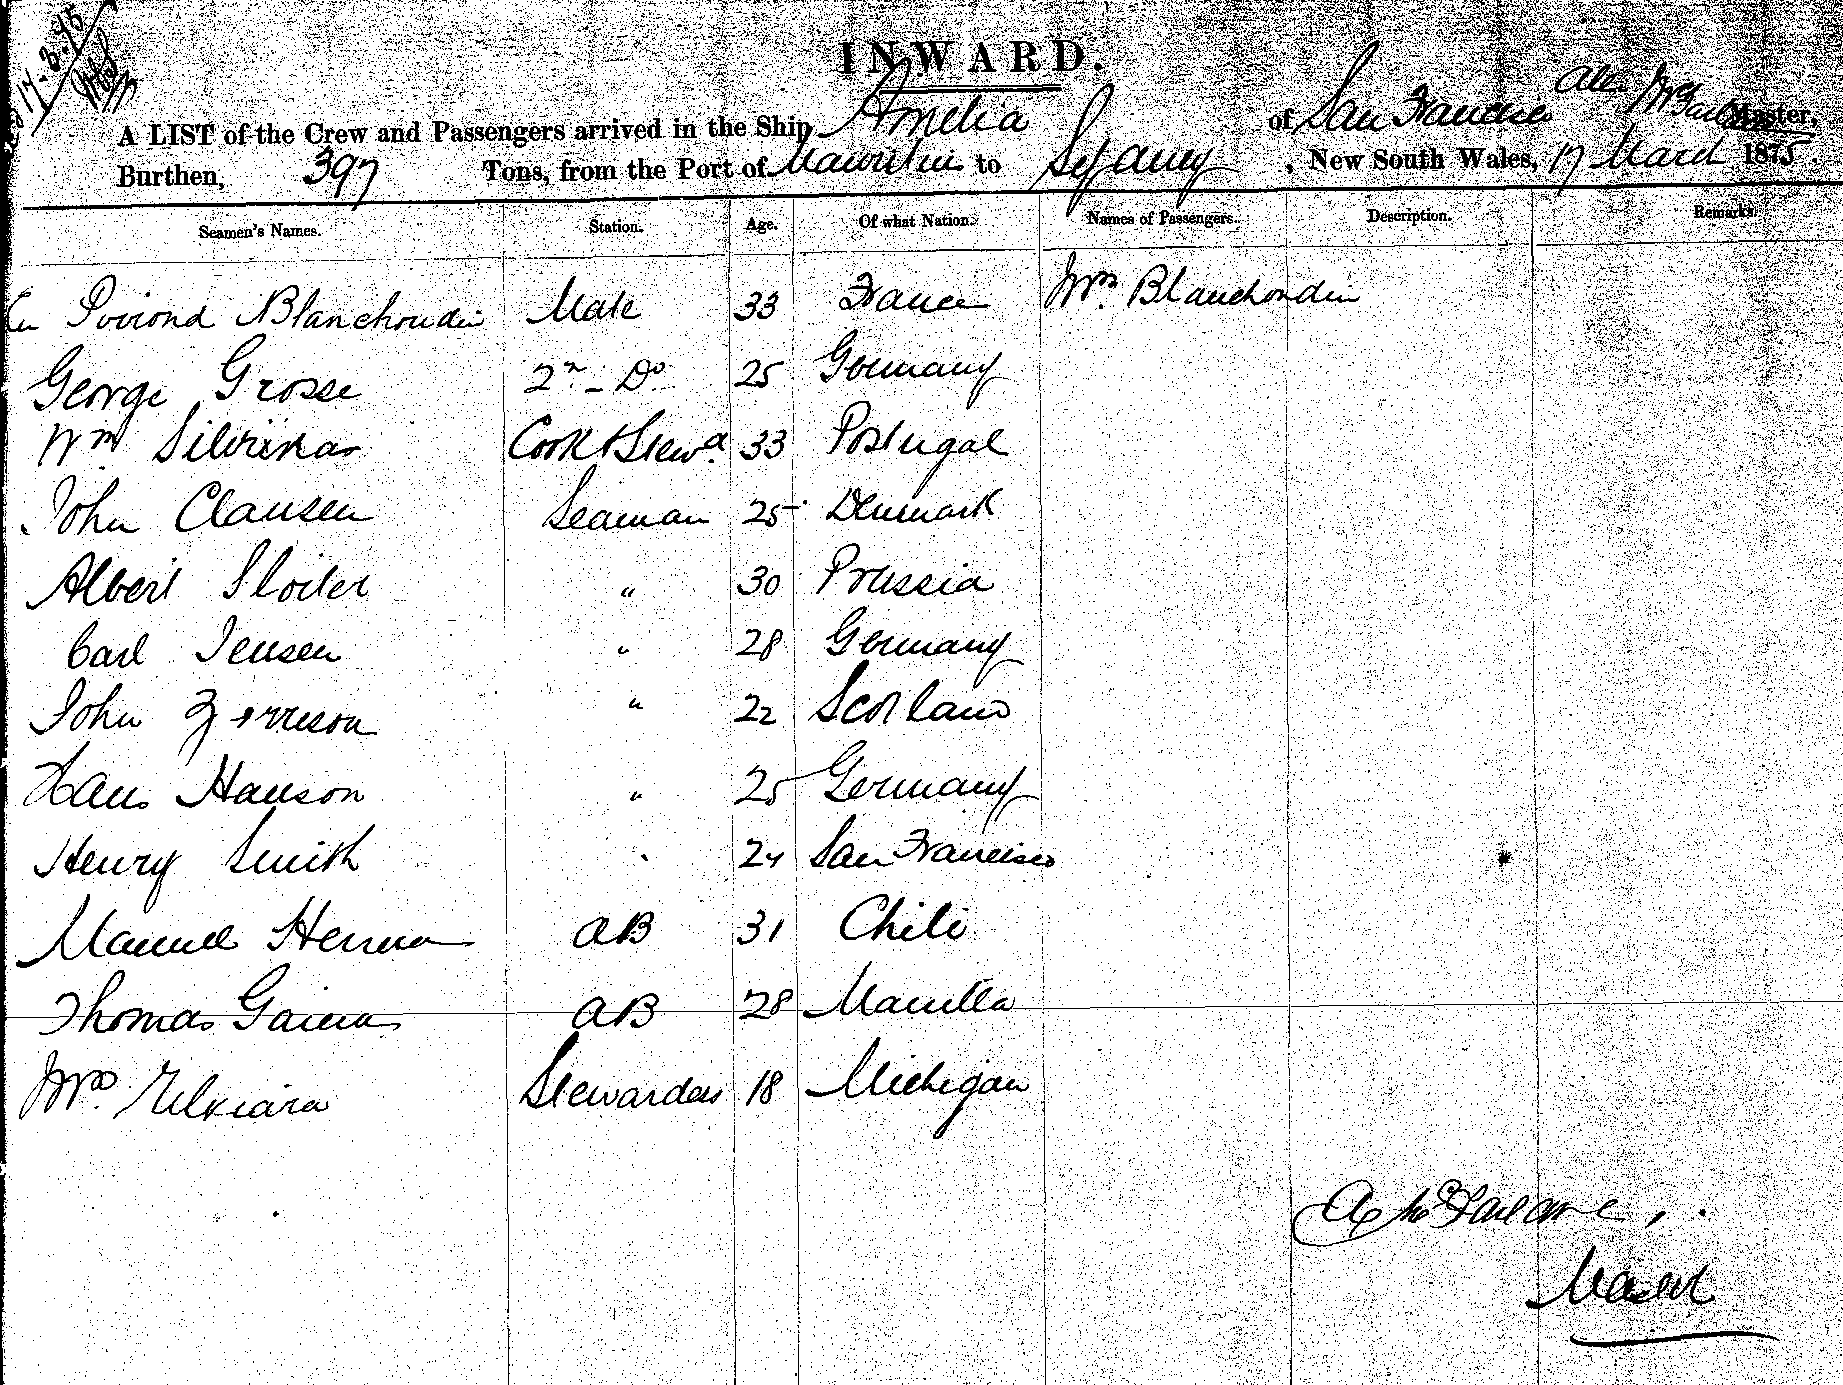 17-3-75
INWARD.
A LIST of the Crew and Passengers arrived in the Ship Amelia of San Francisco Alex McFarlane Master,
Burthen, 397 Tons, from the Port of Mauritius to Sydney, New South Wales, 17 March 1875.
Seamen's Names. Station. Age. Of what Nation. Names of Passengers. Description. Remarks.
Blanchondin Mate 33 France Mrs. Blanchondin
George Grosse 2nd Do 25 Germany
Wm Cook & Stewd. 33 Portugal
John Clausen Seaman 25 Denmark
Albert " 30 Prussia
Carl Jensen " 28 Germany
John " 22 Scotland
Hans Hanson " 25 Germany
Henry Smith " 24 San Francisco
Manuel Herrera AB 31 Chili
Thomas Garcia AB 28 Manilla
Mrs. Stewardess 18 Michigan
A McFarlane
Master